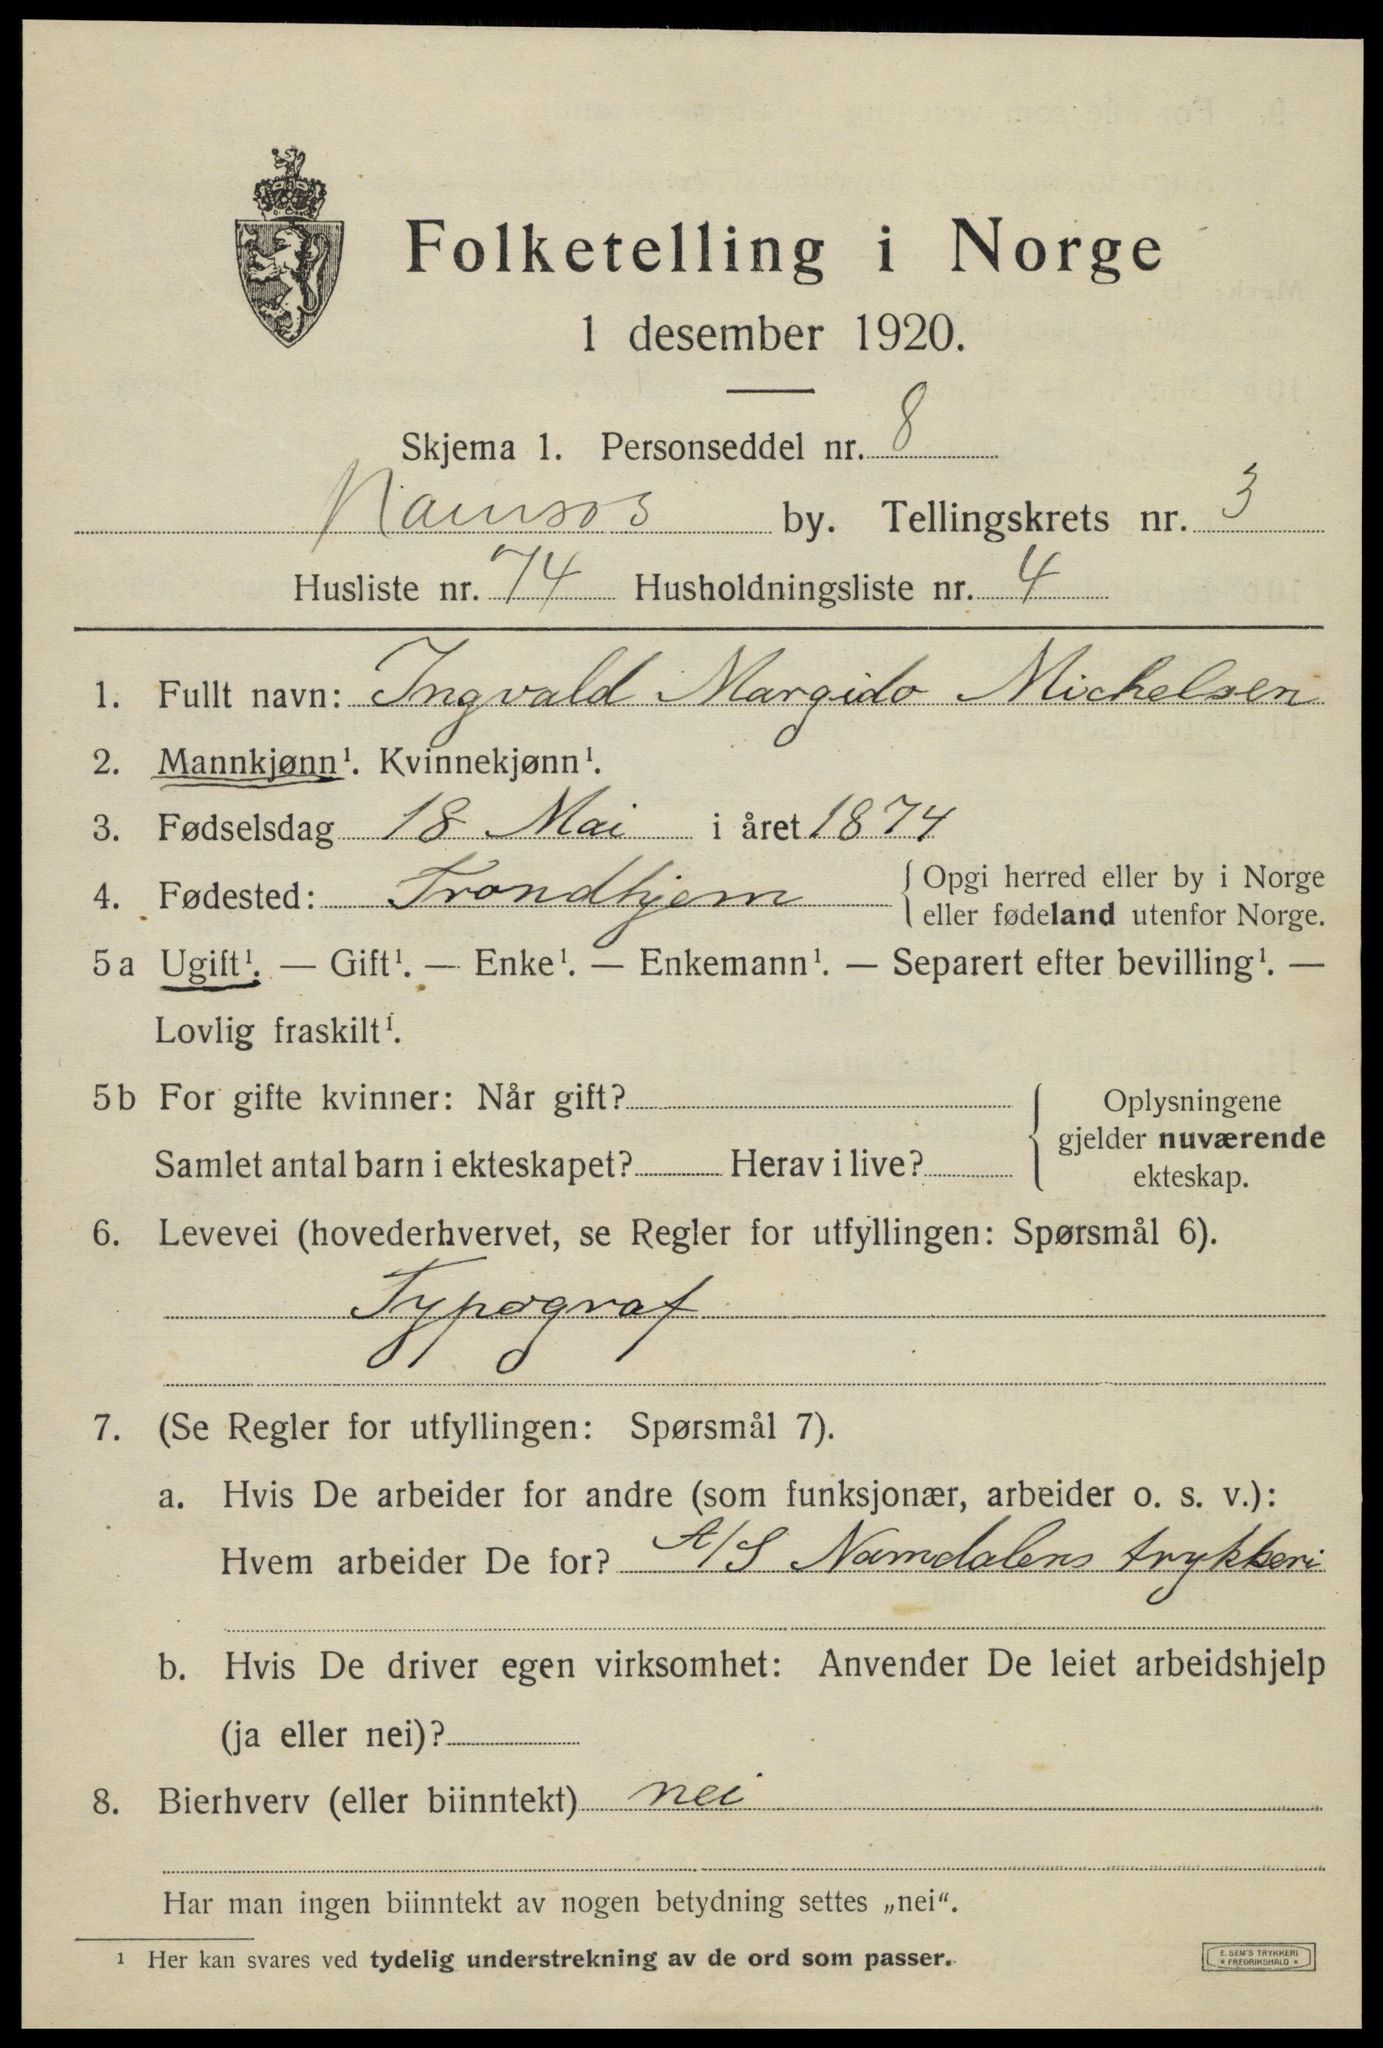 Folketelling i Norge
1 desember 1920.
Skjema 1. Personseddel nr. 8
Namsos by. Tellingskrets nr. 3
Husliste nr. 74 Husholdningsliste nr. 4
1. Fullt navn: Ingvald Margido Michelsen
2. Mannkjønn¹. Kvinnekjønn¹.
3. Fødselsdag 18 Mai i året 1874
4. Fødested: Trondhjem { Opgi herred eller by i Norge
eller fødeland utenfor Norge.
5 a Ugift¹. — Gift¹. — Enke¹. — Enkemann¹. — Separert efter bevilling¹. —
Lovlig fraskilt¹.
5 b For gifte kvinner: Når gift? { Oplysningene
gjelder nuværende
Samlet antal barn i ekteskapet? Herav i live? ekteskap.
6. Levevei (hovederhvervet, se Regler for utfyllingen: Spørsmål 6).
Typograf
7. (Se Regler for utfyllingen: Spørsmål 7).
a. Hvis De arbeider for andre (som funksjonær, arbeider o. s. v.):
Hvem arbeider De for? A/S Namdalens trykkeri
b. Hvis De driver egen virksomhet: Anvender De leiet arbeidshjelp
(ja eller nei)?
8. Bierhverv (eller biinntekt) nei
Har man ingen biinntekt av nogen betydning settes „nei“.
¹ Her kan svares ved tydelig understrekning av de ord som passer.
E. SEM'S TRYKKERI
* FREDRIKSHALD *